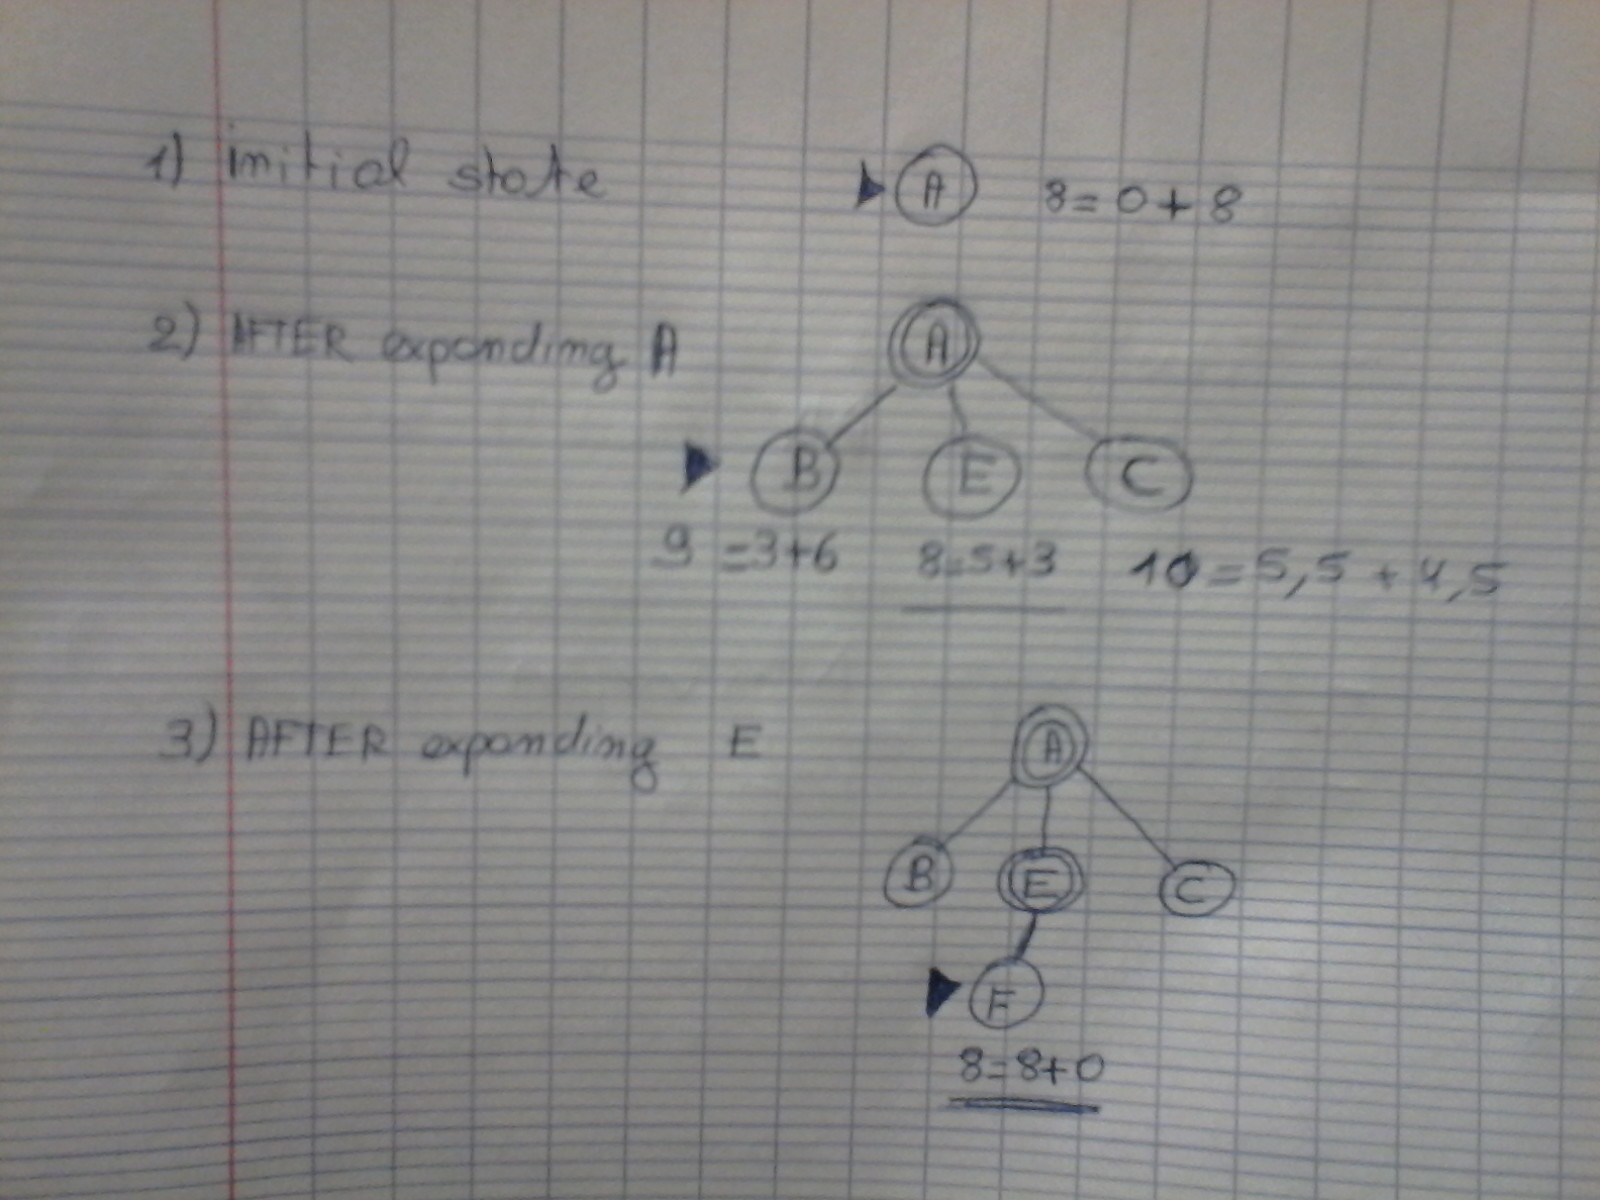 1) initial state A 8=0+8
2) AFTER expanding A
A
B E C
9=3+6 8=5+3 10=5,5+4,5
3) AFTER expanding E
A
B E C
F
8=8+0